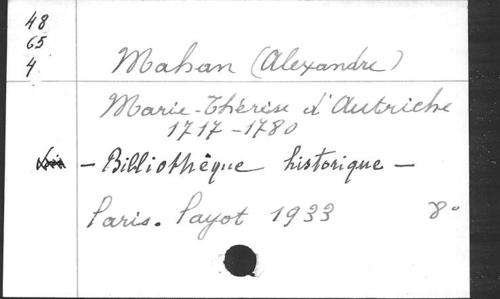 48
65
4
Mahan (Alexandre)
Marie-Thérèse d'Autriche
1717-1780
— Bibliothèque historique —
Paris. Payot 1933 8°